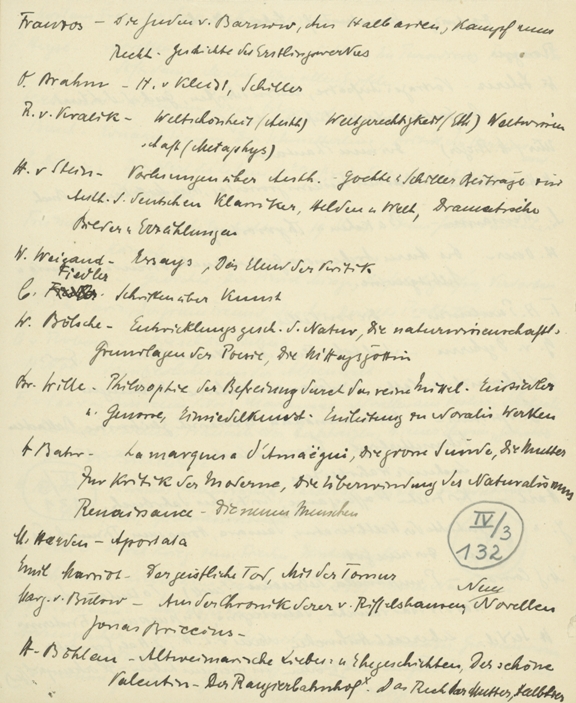 Franzos – Die Juden v. Barnow, Aus Halbasien, Kampf ums
Recht – Geschichte des Erstlingswerkes
O. Brahm – H. v Kleist, Schiller
R. v. Kralik – Weltschönheit (Aesth) Weltgerechtigkeit (Eth) Weltwissen
schaft (Metaphys)
H. v Stein – Vorlesungen über Aesth. – Goethe u Schiller Beiträge zur
Aesth. d. deutschen Klassiker, Helden u Welt, Dramatische
Bilder u Erzählungen
W. Weigand – Essays, Das Elend der Kritik
Fiedler
C. Schriften über Kunst
W. Bölsche – Entwicklungsgesch. d. Natur, die naturwissenschaftl.
Grundlagen der Poesie, Die Mittagsgöttin
Br. Wille – Philosophie der Befreiung durch das reine Mittel – Einsiedler
u. Genosse, Einsiedelkunst – Einleitung zu Novalis Werken
H Bahr – La marquesa d'Amaëgui, die grosse Sünde, die Mutter
Zur Kritik der Moderne, die Überwindung des Naturalismus
Renaissance – Die neuen Menschen
IV/3
132
M. Harden – Apostata
Emil Marriot – Der geistliche Tod, Mit der Tonsur
Neue
Marg. v. Bülow – Aus der Chronik derer v. Riffelshausen, Novellen
Jonas Briccius –
H. Böhlau – Altweimarische Liebes- u Ehegeschichten, Der schöne
Valentin – Der Rangierbahnhof x. Das Recht der Mutter, Halbtier